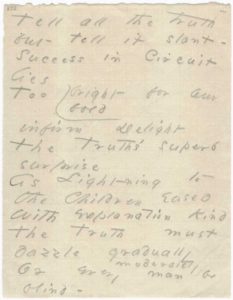 Tell all the truth
but tell it slant -
Success in Circuit
lies
Too bright for our
bold
infirm Delight
The Truth's superb
surprise
As Lightning to
the Children eased
With explanation kind
The Truth must
dazzle gradually
moderately
Or every man be
blind -